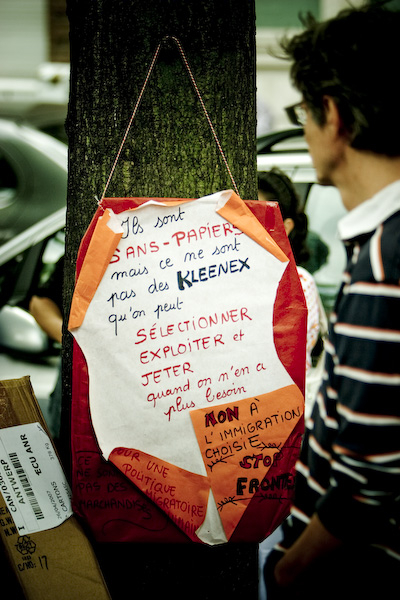 Ils sont
SANS-PAPIERS
mais ce ne sont
pas des KLEENEX
qu'on peut
SÉLECTIONNER
EXPLOITER et
JETER
quand on n'en a
plus besoin
NON À
L'IMMIGRATION
CHOISIE
STOP
FRONTE
POUR UNE
POLITIQUE
MIGRATOIRE
PAS DES
MARCHANDIS
CARTONS
17